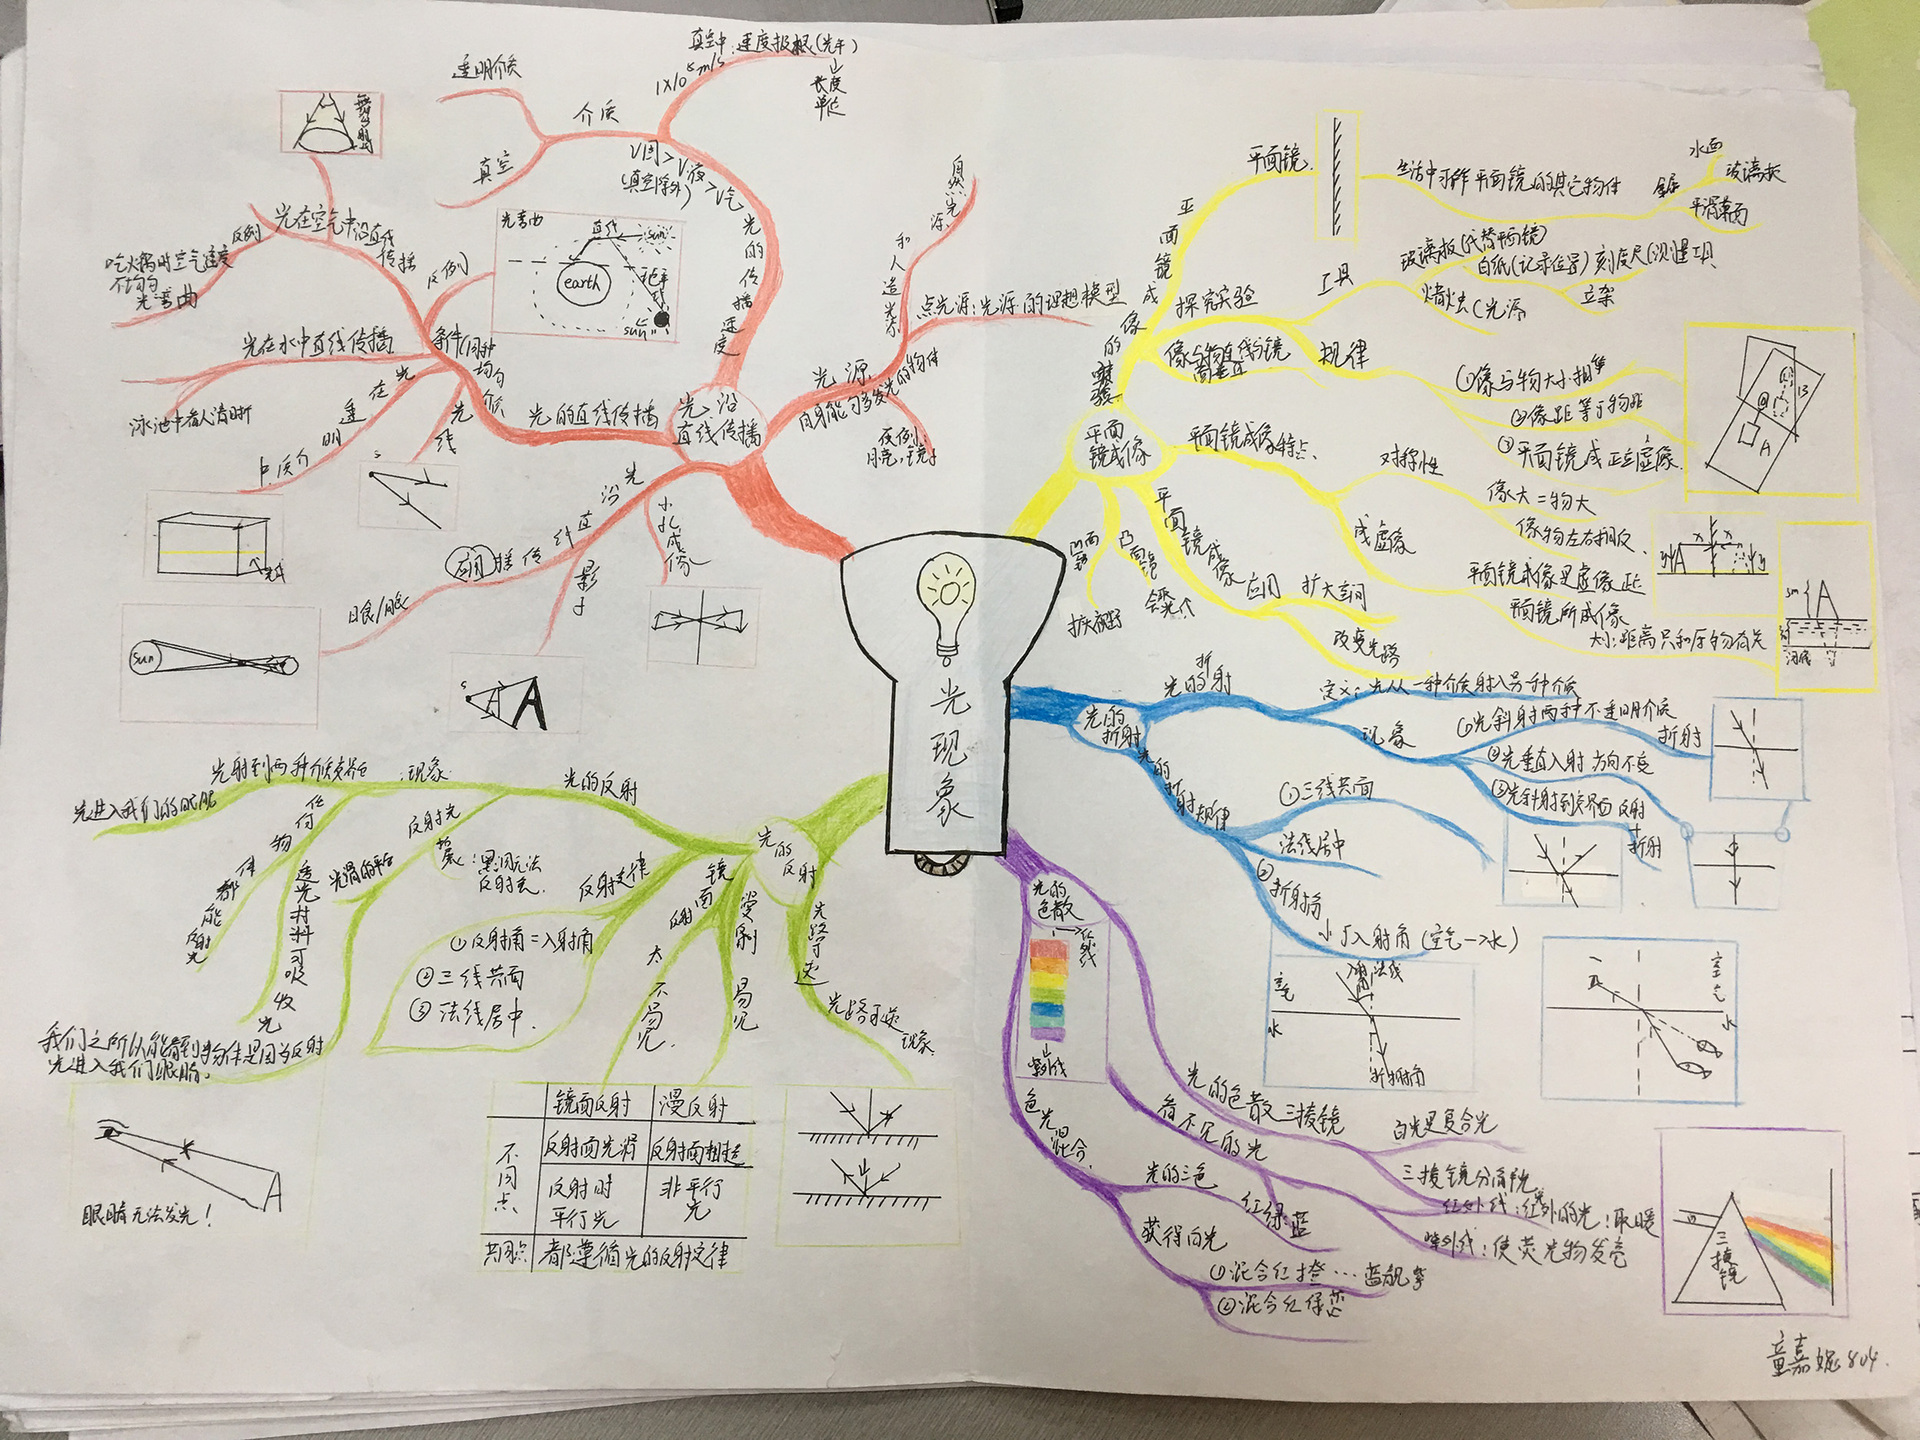 光现象
光沿
直线传播
光的传播速度
介质
透明介质
真空
1×10⁸m/s
真空中:速度极限(光年)
↓
长度
单位
V固>V液>V气
(真空除外)
光源
自身能够发光的物体
自然光源
和人造光源
点光源:光源的理想模型
反例:
月亮,镜子
光的直线传播
条件(同种
均匀
介质
光在空气中沿直线
传播
反例
吃火锅时空气密度
不均匀
光弯曲
反例
光弯曲
直线
sun
earth
地平
sun
光在水中直线传播
泳池中看人清晰
光在透明介质中
光线
S
光沿直线传播
应用
日食/月食
影子
小孔成像
sun
S
A
A
平面
镜成像
平面镜成像的实验
平面镜
生活中可作平面镜的其它物件
水面
玻璃板
金属
平滑桌面
探究实验
工具
玻璃板(代替平面镜)
白纸(记录位置)
刻度尺(测量工具
蜡烛(光源
立架
像与物直线与镜
面垂直
规律
①像与物大小相等
②像距等于物距
③平面镜成正立虚像
B
A
平面镜成像特点
对称性
像大=物大
像物左右相反
成虚像
平面镜成像是虚像
平面镜所成像
大小:距离只和原物有关
A
5m
A
平面镜成像应用
扩大空间
改变光路
凸面镜
凹面镜
扩大视野
光的
折射
光的折射
定义:光从一种介质射入另一种介质
现象
①光斜射两种不透明介质
折射
②光垂直入射方向不变
③光斜射到交界面反射
+
折射
光的折射规律
①三线共面
法线居中
②折射角
小于入射角(空气→水)
空气
水
法线
折射角
空气
水
光的
色散
→红外线
↓
紫外线
光的色散
三棱镜
白光是复合光
三棱镜分解光
看不见的光
红外线:红外的光:取暖
紫外线:使荧光物发亮
色光混合
光的三色
红绿蓝
获得白光
①混合红橙…蓝靛紫
②混合红绿蓝
三
棱
镜
光的
反射
光的反射
现象
光射到两种介质交界面
光进入我们的眼睛
任何物体都能反射光
透光材料可吸收光
反射光
光滑的平面
黑洞无法
反射光.
我们之所以能看到物体是因为反射
光进入我们眼睛。
A
眼睛无法发光!
反射定律
①反射角=入射角
②三线共面
③法线居中.
镜面反射
不易见.
漫反射
易见
光路可逆
光路可逆
现象
镜面反射
漫反射
不同点
反射面光滑
反射面粗糙
反射时
平行光
非平行
光
共同点
都遵循光的反射定律
童嘉妮804.